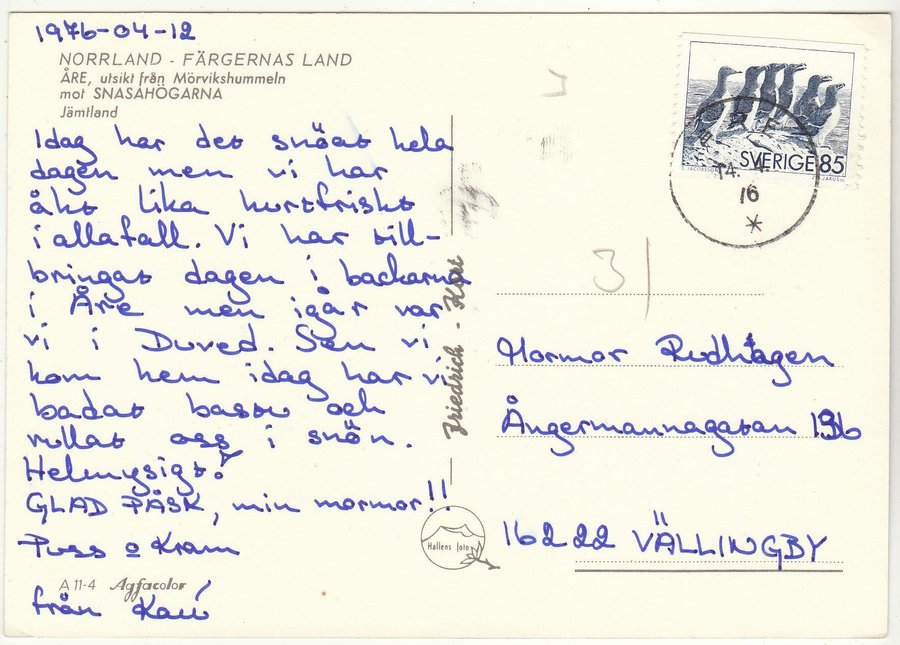 1976-04-12
NORRLAND - FÄRGERNAS LAND
ÅRE, utsikt från Mörvikshummeln
mot SNASAHÖGARNA
Jämtland
Idag har det snöat hela
dagen men vi har
åkt lika hurtfriskt
i allafall. Vi har till-
bringat dagen i backarna
i Åre men igår var
vi i Duved. Sen vi
kom hem idag har vi
badat bastu och
rullat oss i snön.
Helmysigt!
GLAD PÅSK, min mormor!!
Puss o Kram
från
A 11-4 Agfacolor
Friedrich - Kort
Hallens foto
SVERIGE 85
14. 4.
76
3
Mormor Rudhagen
Ångermannagatan 136
162 22 VÄLLINGBY